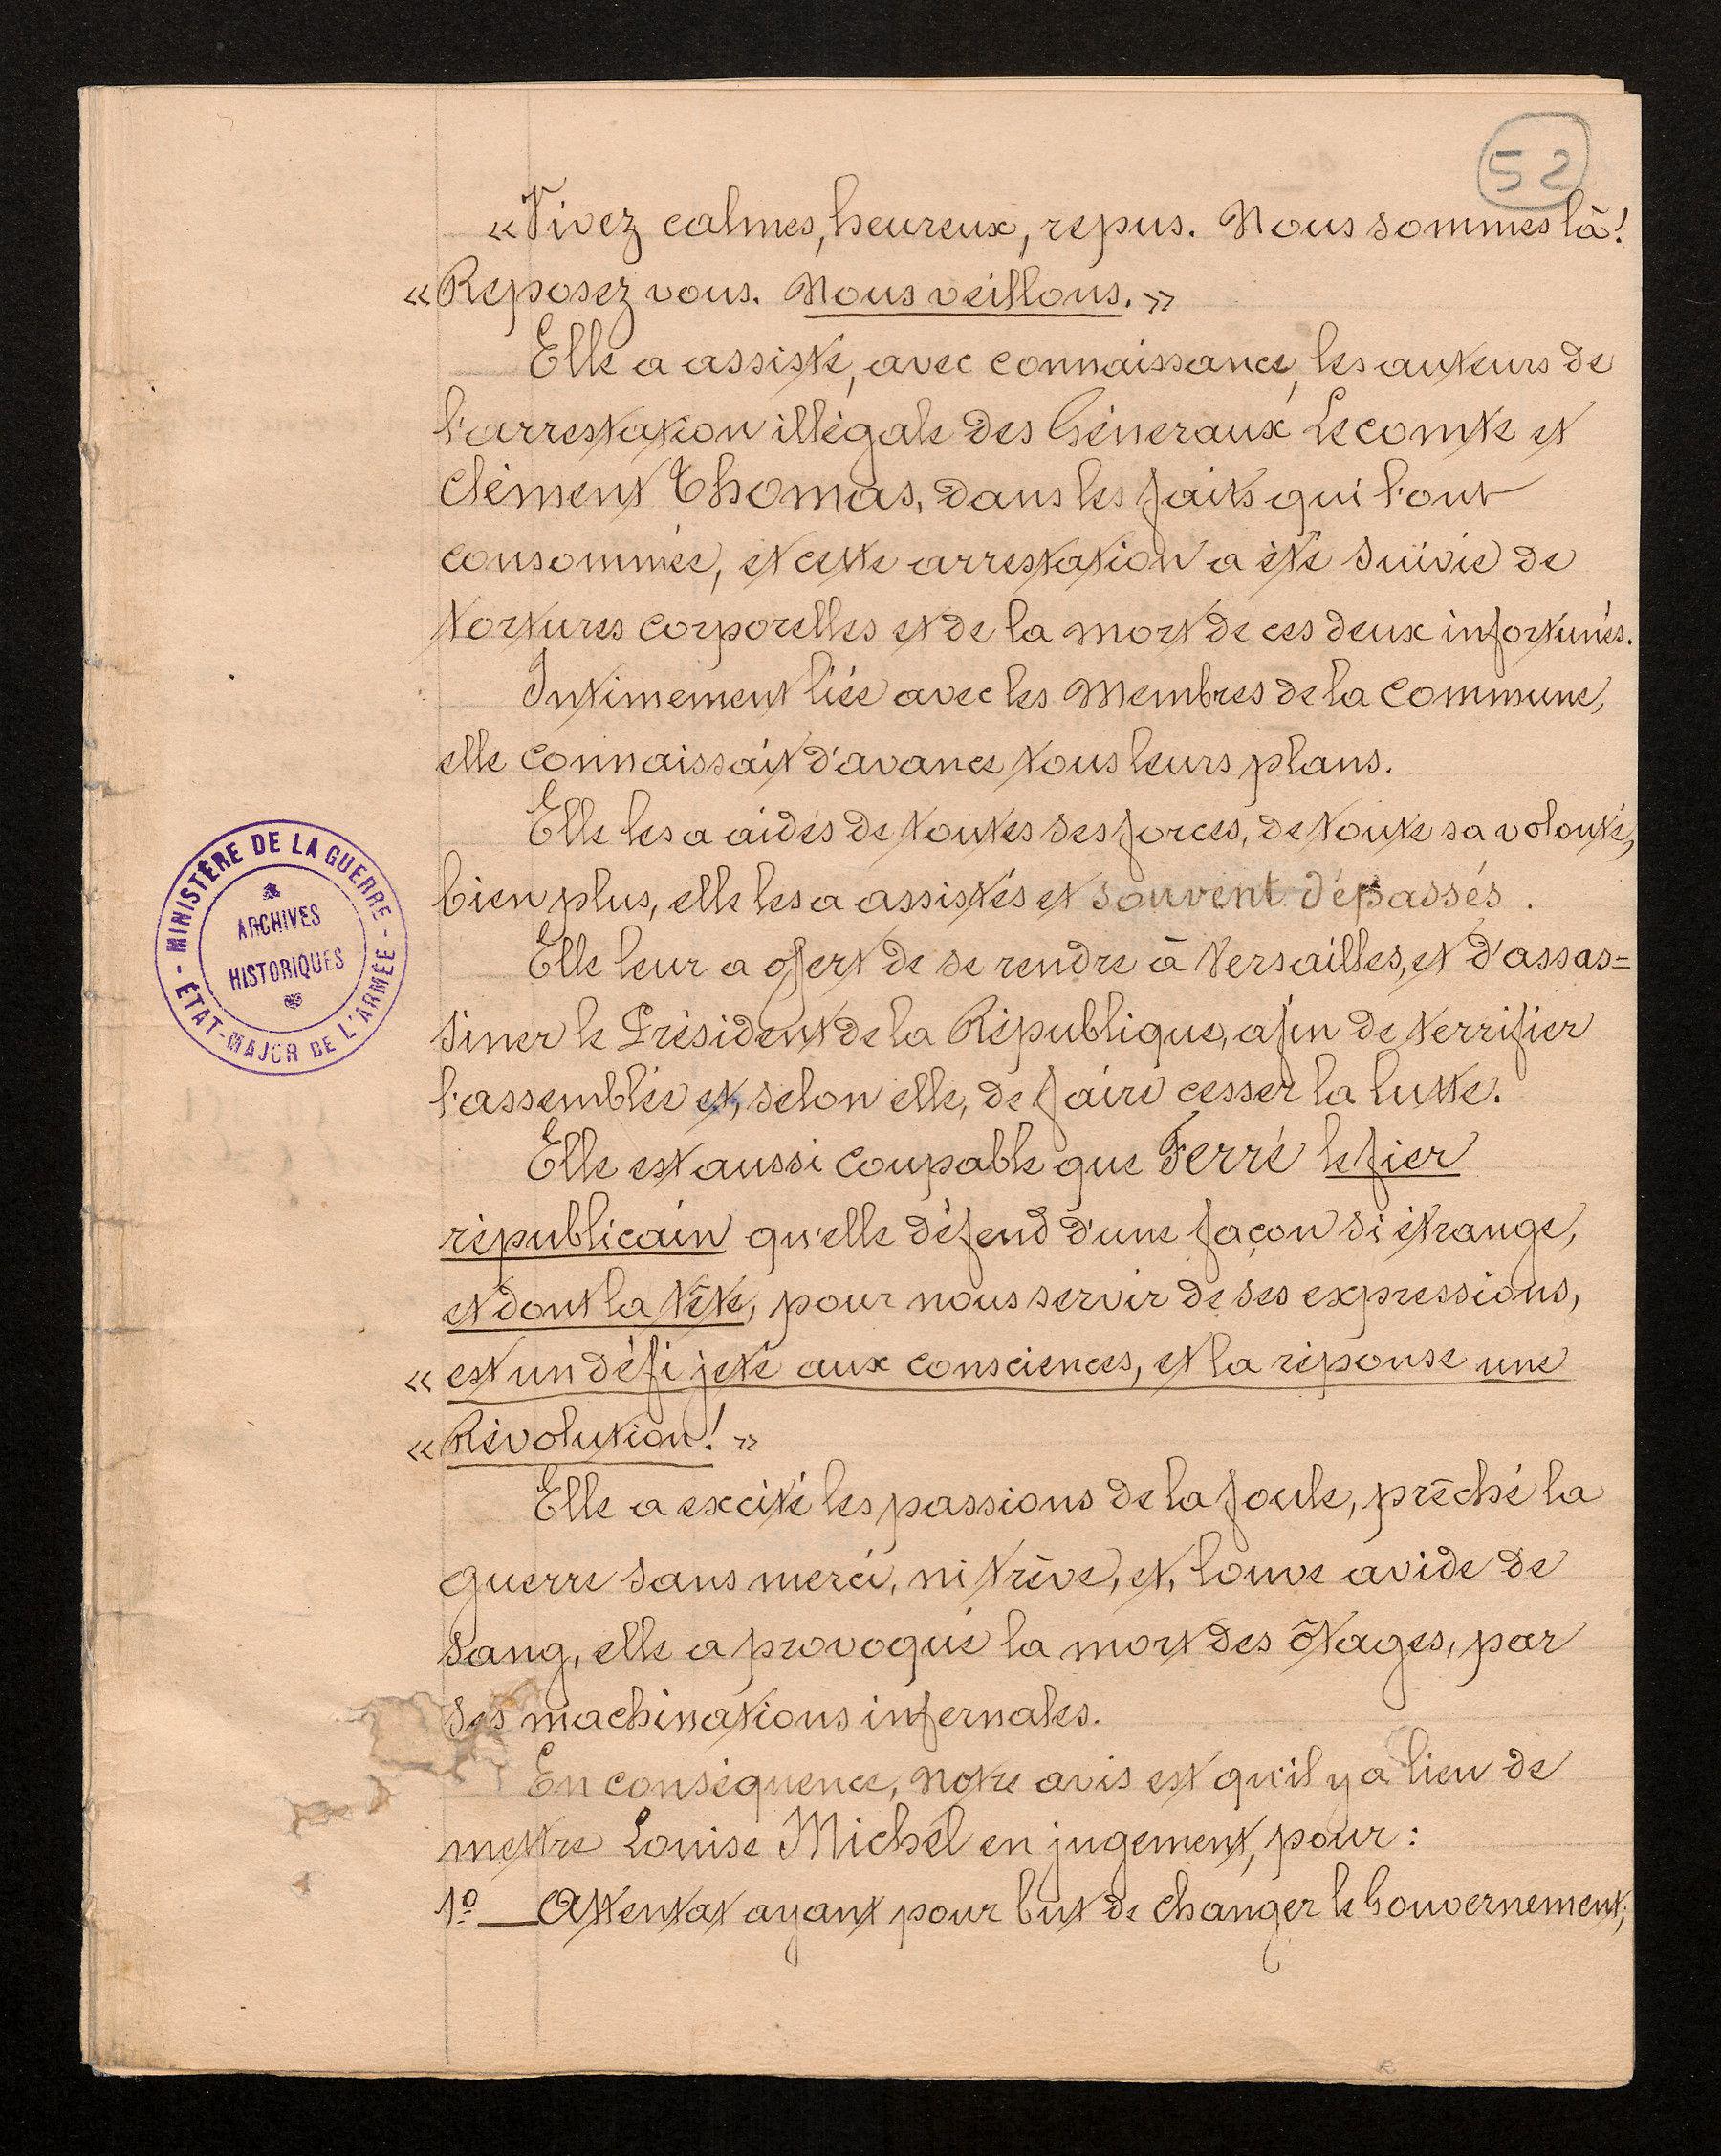 52
« Vivez calmes, heureux, repus. Nous sommes là!
« Reposez vous. Nous veillons. »
Elle a assisté, avec connaissance, les auteurs de
l'arrestation illégale des Généraux Lecomte et
Clément Thomas, dans les faits qui l'ont
consommée, et cette arrestation a été suivie de
tortures corporelles et de la mort de ces deux infortunés.
Intimement liée avec les Membres de la Commune,
elle connaissait d'avance tous leurs plans.
Elle les a aidés de toutes ses forces, de toute sa volonté,
bien plus, elle les a assistés et souvent dépassés.
Elle leur a offert de se rendre à Versailles, et d'assas=
siner le Président de la République, afin de terrifier
l'assemblée et, selon elle, de faire cesser la lutte.
Elle est aussi coupable que Ferré le fier
républicain qu'elle défend d'une façon si étrange,
et dont la tête, pour nous servir de ses expressions,
« est un défi jeté aux consciences, et la réponse une
« Révolution! »
Elle a excité les passions de la foule, prêché la
guerre sans merci, ni trêve, et, louve avide de
sang, elle a provoqué la mort des ôtages, par
ses machinations infernales.
En conséquence, notre avis est qu'il y a lieu de
mettre Louise Michel en jugement, pour :
1º — Attentat ayant pour but de changer le Gouvernement;
MINISTÈRE DE LA GUERRE - ÉTAT-MAJOR DE L'ARMÉE -
ARCHIVES
HISTORIQUES